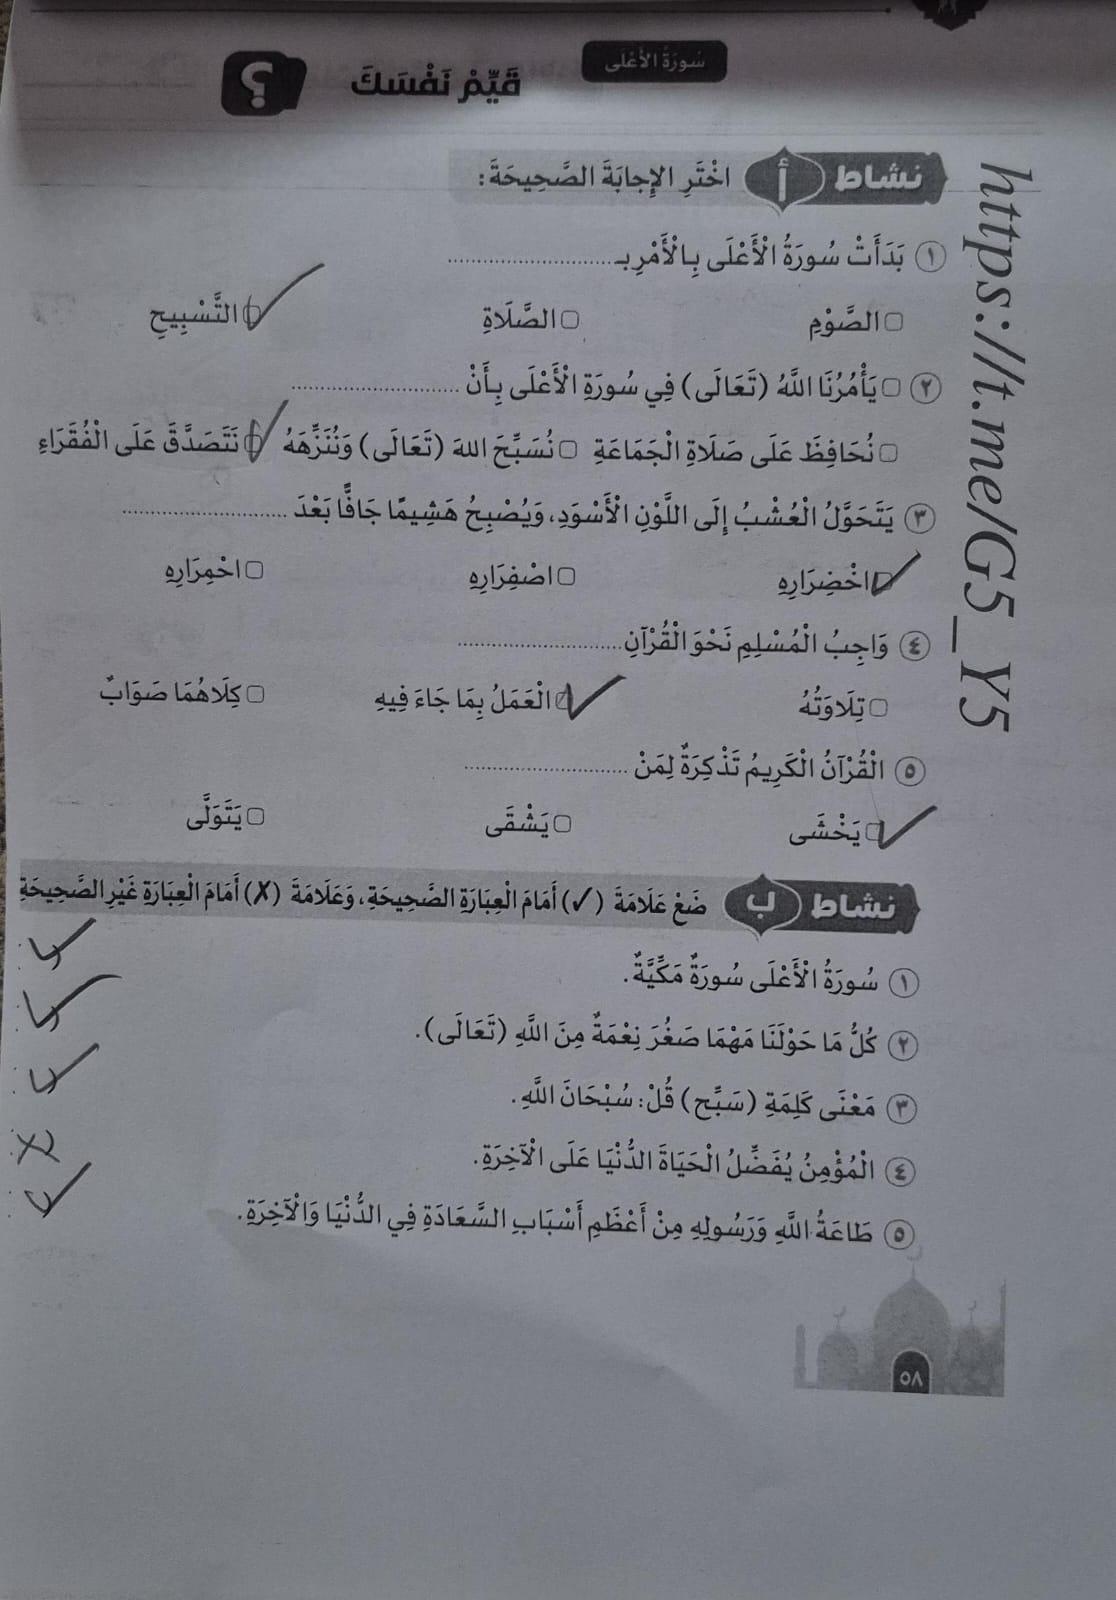 سُورَةُ الْأَعْلَى
قَيِّمْ نَفْسَكَ ؟
نشاط أ اخْتَرِ الإِجابَةَ الصَّحِيحَةَ:
١ بَدَأَتْ سُورَةُ الْأَعْلَى بِالْأَمْرِ بـ............................
الصَّوْمِ الصَّلَاةِ التَّسْبِيحِ
٢ يَأْمُرُنَا اللَّهُ (تَعَالَى) فِي سُورَةِ الْأَعْلَى بِأَنْ ............................
نُحَافِظَ عَلَى صَلَاةِ الْجَمَاعَةِ نُسَبِّحَ اللهَ (تَعَالَى) وَنُنَزِّهَهُ نَتَصَدَّقَ عَلَى الْفُقَرَاءِ
٣ يَتَحَوَّلُ الْعُشْبُ إِلَى اللَّوْنِ الْأَسْوَدِ، وَيُصْبِحُ هَشِيمًا جَافًّا بَعْدَ ............................
اخْضِرَارِهِ اصْفِرَارِهِ احْمِرَارِهِ
٤ وَاجِبُ الْمُسْلِمِ نَحْوَ الْقُرْآنِ............................
تِلَاوَتُهُ الْعَمَلُ بِمَا جَاءَ فِيهِ كِلَاهُمَا صَوَابٌ
٥ الْقُرْآنُ الْكَرِيمُ تَذْكِرَةٌ لِمَنْ ............................
يَخْشَى يَشْقَى يَتَوَلَّى
نشاط ب ضَعْ عَلَامَةَ (✓) أَمَامَ الْعِبَارَةِ الصَّحِيحَةِ، وَعَلَامَةَ (✗) أَمَامَ الْعِبَارَةِ غَيْرِ الصَّحِيحَةِ
١ سُورَةُ الْأَعْلَى سُورَةٌ مَكِّيَّةٌ.
٢ كُلُّ مَا حَوْلَنَا مَهْمَا صَغُرَ نِعْمَةٌ مِنَ اللَّهِ (تَعَالَى).
٣ مَعْنَى كَلِمَةِ (سَبِّحِ) قُلْ: سُبْحَانَ اللَّهِ.
٤ الْمُؤْمِنُ يُفَضِّلُ الْحَيَاةَ الدُّنْيَا عَلَى الْآخِرَةِ.
٥ طَاعَةُ اللَّهِ وَرَسُولِهِ مِنْ أَعْظَمِ أَسْبَابِ السَّعَادَةِ فِي الدُّنْيَا وَالْآخِرَةِ.
٥٨
https://t.me/G5_Y5